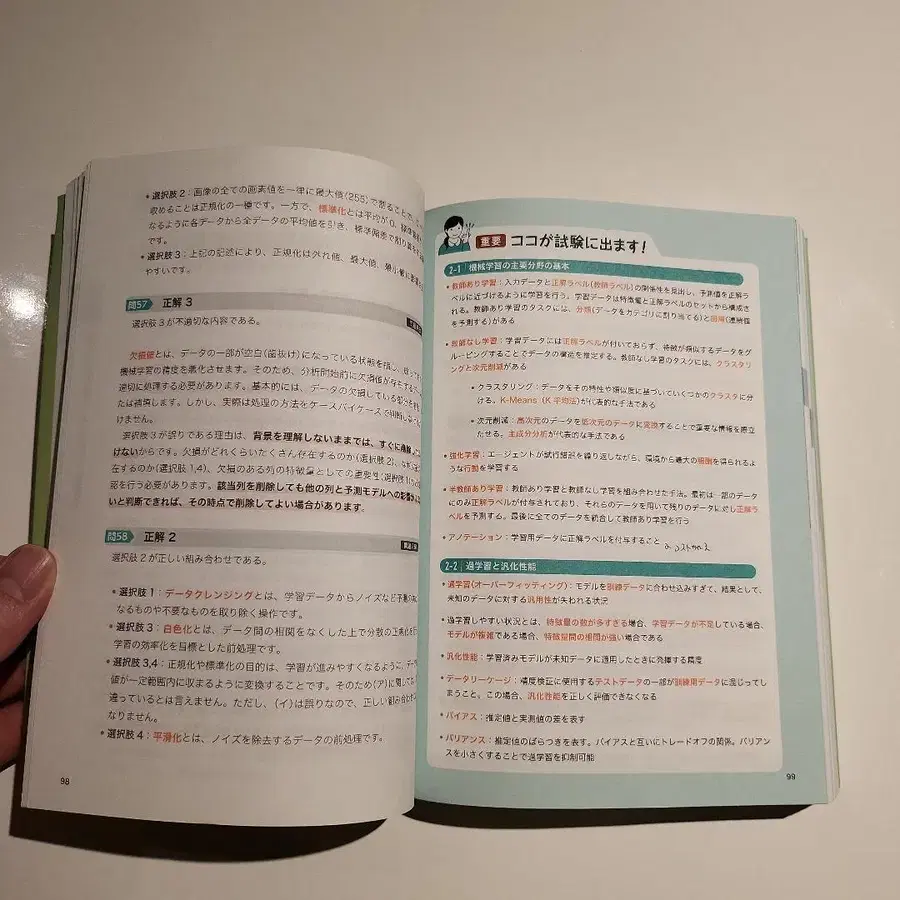 ・選択肢2：画像の全ての画素値を一律に最大値(255)で割ることで、
収めることは正規化の一種です。一方で、標準化とは平均が0、
なるように各データから全データの平均値を引き、標準偏差で割り
です。
・選択肢3：上記の記述により、正規化は外れ値、最大値、最小値に
やすいです。
問57 正解 3
選択肢3が不適切な内容である。
欠損値とは、データの一部が空白(歯抜け)になっている状態を指し、
機械学習の精度を悪化させます。そのため、分析開始前に欠損値が存在する
適切に処理する必要があります。基本的には、データの欠損している部分を
たは補填します。しかし、実際は処理の方法をケースバイケースで判断しな
けません。
選択肢3が誤りである理由は、背景を理解しないままでは、すぐに削除し
けないからです。欠損がどれくらいたくさん存在するのか(選択肢2)、なぜ
在するのか(選択肢1,4)、欠損のある列の特徴量としての重要性(選択肢1)
認を行う必要があります。該当列を削除しても他の列と予測モデルへの影響
いと判断できれば、その時点で削除してよい場合があります。
問58 正解 2
選択肢2が正しい組み合わせである。
・選択肢1：データクレンジングとは、学習データからノイズなど予測の
なるものや不要なものを取り除く操作です。
・選択肢3：白色化とは、データ間の相関をなくした上で分散の正規化を
学習の効率化を目標とした前処理です。
・選択肢3,4：正規化や標準化の目的は、学習が進みやすくなるように、
値が一定範囲内に収まるように変換することです。そのため(ア)に関して
違っているとは言えません。ただし、(イ)は誤りなので、正しい組み合わせ
なりません。
・選択肢4：平滑化とは、ノイズを除去するデータの前処理です。
98
重要 ココが試験に出ます！
2-1 機械学習の主要分野の基本
・教師あり学習：入力データと正解ラベル(教師ラベル)の関係性を見出し、予測値を正解ラ
ベルに近づけるように学習を行う。学習データは特徴量と正解ラベルのセットから構成さ
れる。教師あり学習のタスクには、分類(データをカテゴリに割り当てる)と回帰(連続値
を予測する)がある
・教師なし学習：学習データには正解ラベルが付いておらず、特徴が類似するデータをグ
ルーピングすることでデータの構造を推定する。教師なし学習のタスクには、クラスタリ
ングと次元削減がある
・クラスタリング：データをその特性や類似度に基づいていくつかのクラスタに分
ける。K-Means (K平均法)が代表的な手法である
・次元削減：高次元のデータを低次元のデータに変換することで重要な情報を際立
たせる。主成分分析が代表的な手法である
・強化学習：エージェントが試行錯誤を繰り返しながら、環境から最大の報酬を得られるよ
うな行動を学習する
・半教師あり学習：教師あり学習と教師なし学習を組み合わせた手法。最初は一部のデータ
にのみ正解ラベルが付与されており、それらのデータを用いて残りのデータに対し正解ラ
ベルを予測する。最後に全てのデータを統合して教師あり学習を行う
・アノテーション：学習用データに正解ラベルを付与すること
2-2 過学習と汎化性能
・過学習(オーバーフィッティング)：モデルを訓練データに合わせ込みすぎて、結果として、
未知のデータに対する汎用性が失われる状況
・過学習しやすい状況とは、特徴量の数が多すぎる場合、学習データが不足している場合、
モデルが複雑である場合、特徴量間の相関が強い場合である
・汎化性能：学習済みモデルが未知データに適用したときに発揮する精度
・データリーケージ：精度検証に使用するテストデータの一部が訓練用データに混じってし
まうこと。この場合、汎化性能を正しく評価できなくなる
・バイアス：推定値と実測値の差を表す
・バリアンス：推定値のばらつきを表す。バイアスと互いにトレードオフの関係。バリアン
スを小さくすることで過学習を抑制可能
99